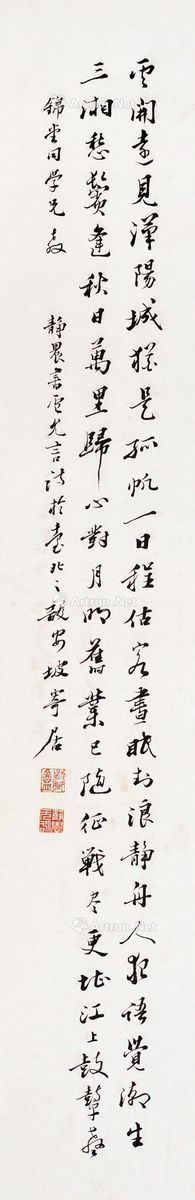 雲開遠見漢陽城猶是孤帆一日程估客晝眠知浪靜舟人夜語覺潮生
三湘愁鬢逢秋日萬里歸心對月明舊業已隨征戰盡更堪江上鼓鼙聲
錦堂同學兄教
靜農書盧允言詩於臺北之龍坡寄居